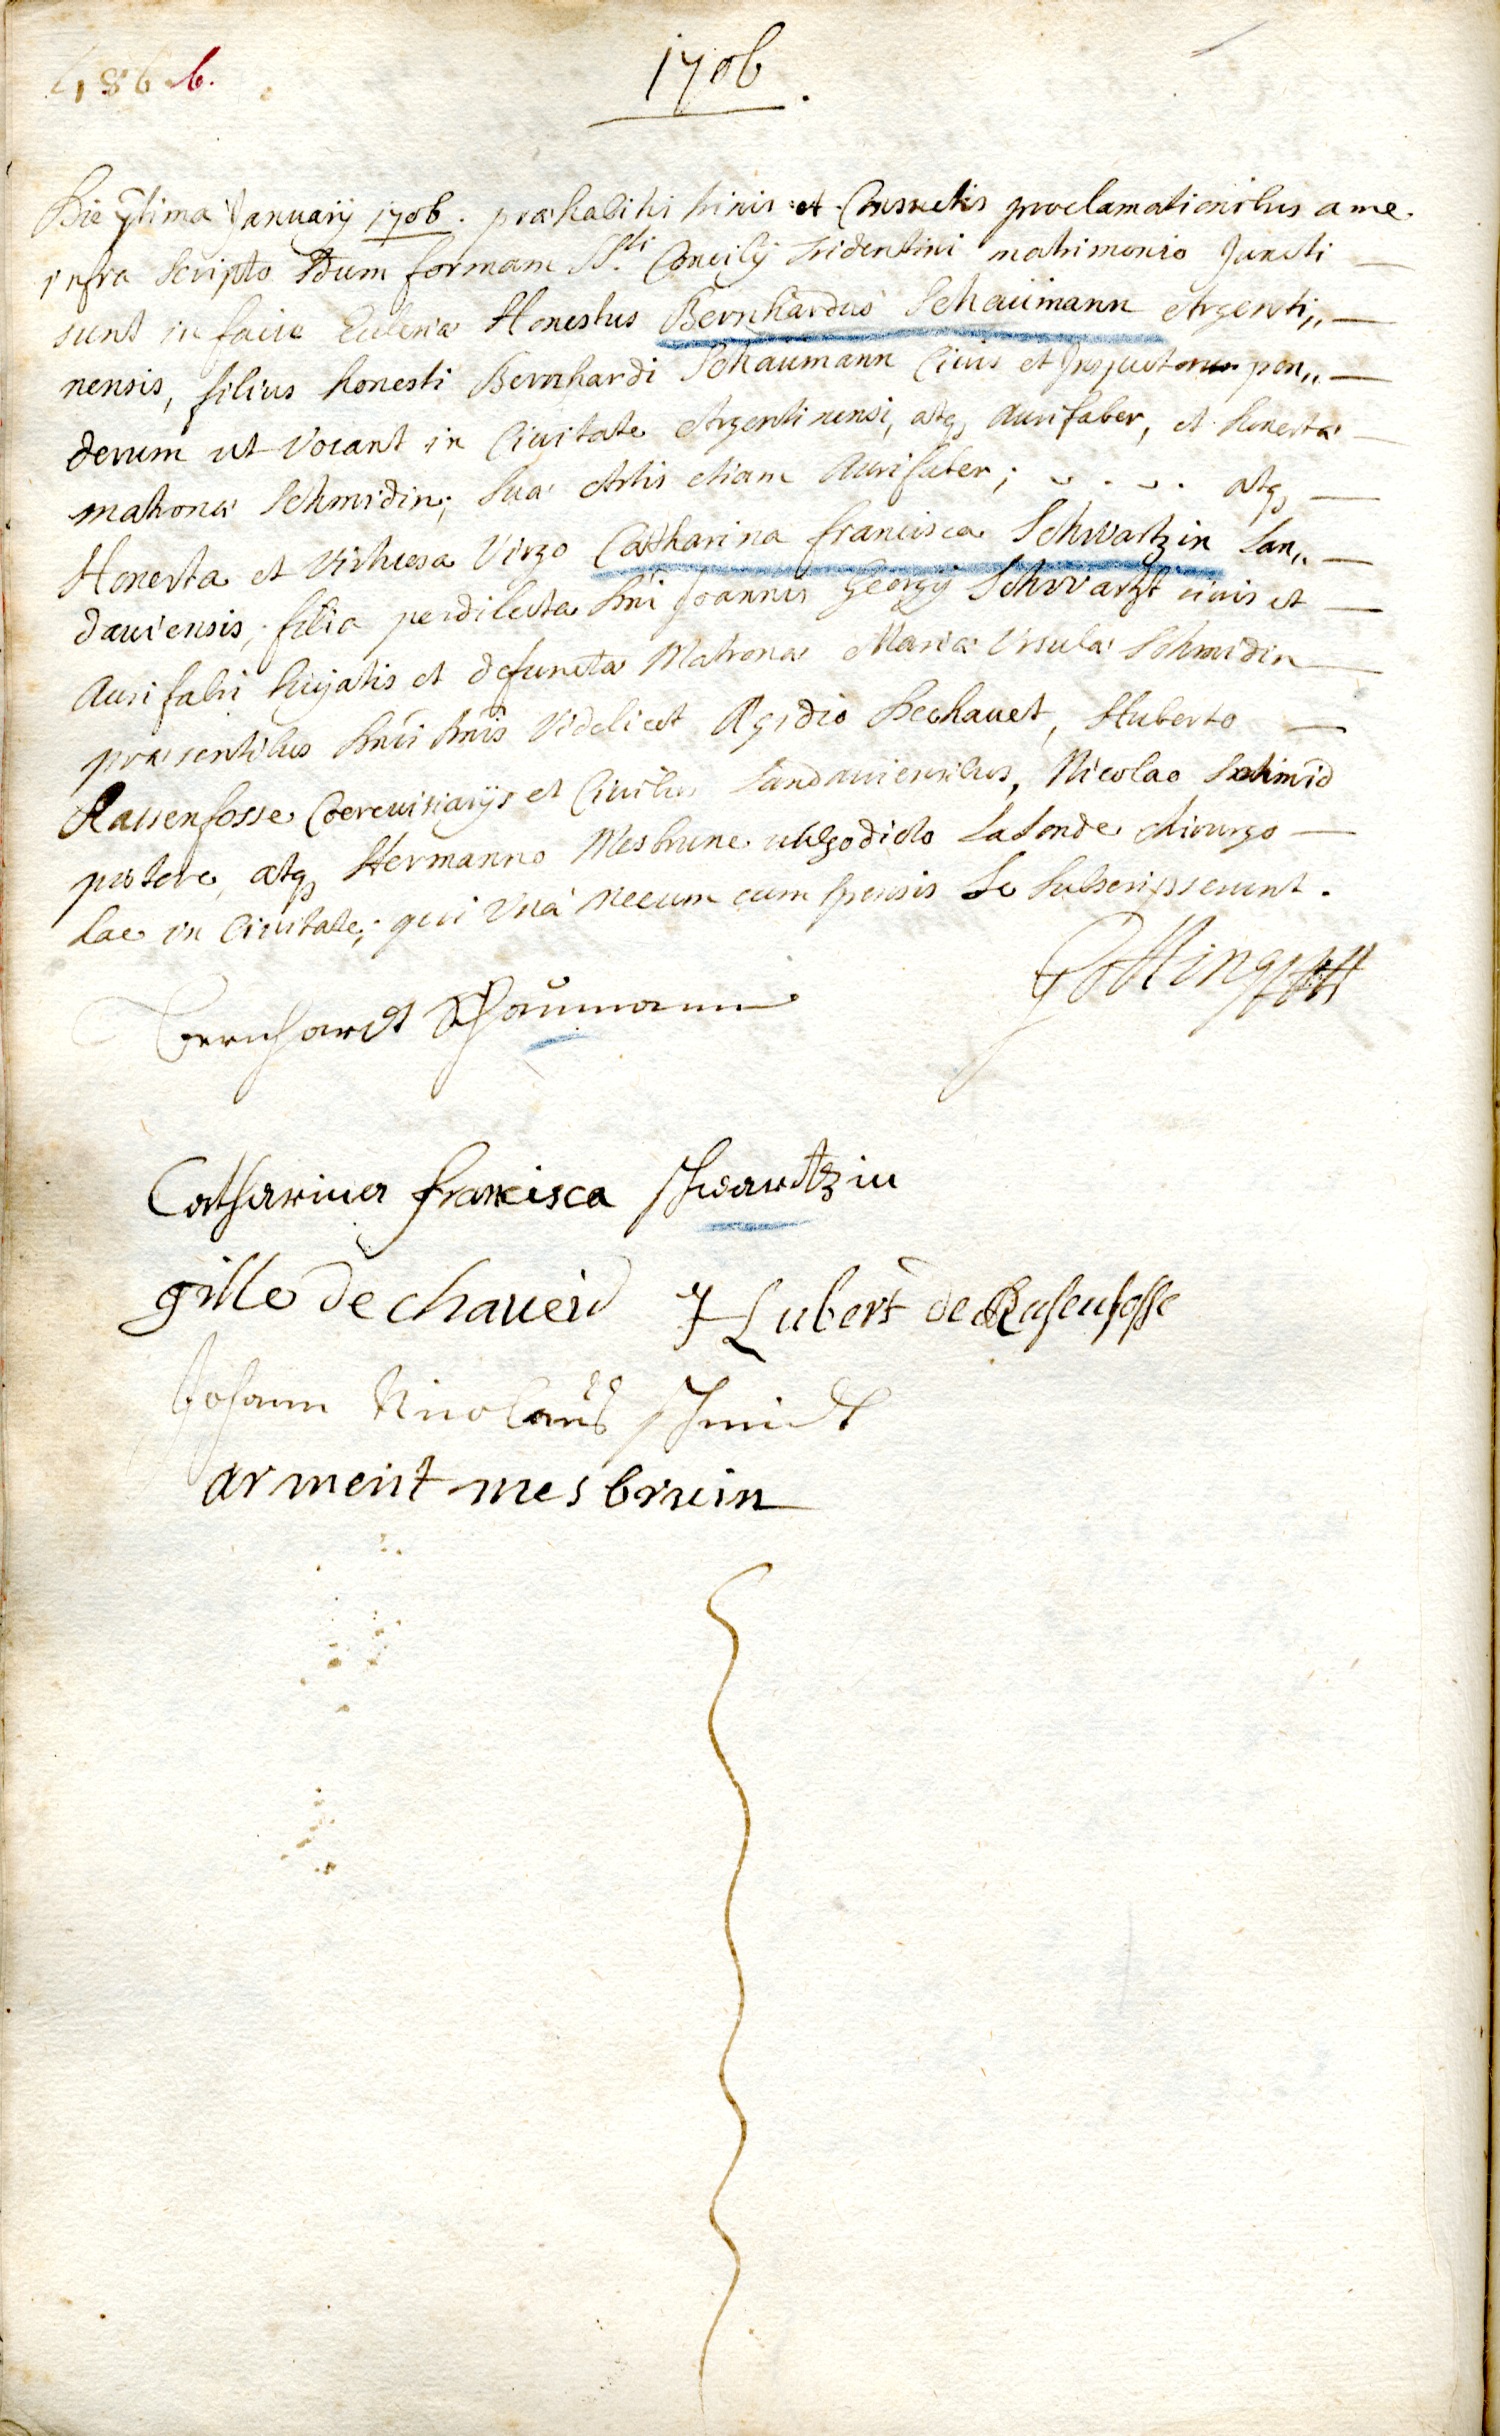 486 b.
1706.
Die ultima Januarij 1706. præhabitis trinis et Consuetis proclamationibus a me
infra scripto 2dum formam Sti. Concilij tridentini matrimonio Juncti
sunt in facie Eclesiæ Honestus Bernhardus Schaümann Argenti,,
nensis, filius honesti Bernhardi Schaumann Civis et Inspectoris pon,,
derum ut vocant in Civitate Argentinensi, atq, Aurifaber, et honestæ
matronæ Schmidin; suæ Artis etiam Aurifaber; atq,
Honesta et virtuosa Virgo Catharina francisca Schwartzin Lan,,
daviensis, filia perdilecta Dni Joannis Georgij Schwartzt civis et
Aurifabri hujatis et defunctæ Matronæ Mariæ Ursulæ Schmidin
præsentibus Dnis videlicet Ægidio Dechauet, Huberto
Rassenfosse Cerevisiarijs et Civibus Landaviensibus, Nicolao Schmid
pistore, atq, Hermanno Mesbrune vulgo dicto LaLonde chirurgo
hac in Civitate; qui Unà mecum cum sponsis se subscripserunt.
Bernhardt Schaümann
Catharina francisca schwartzin
gille de chaueid Hubert de Rasenfosse
Johann Nicolaus schmidt
arment mesbruin